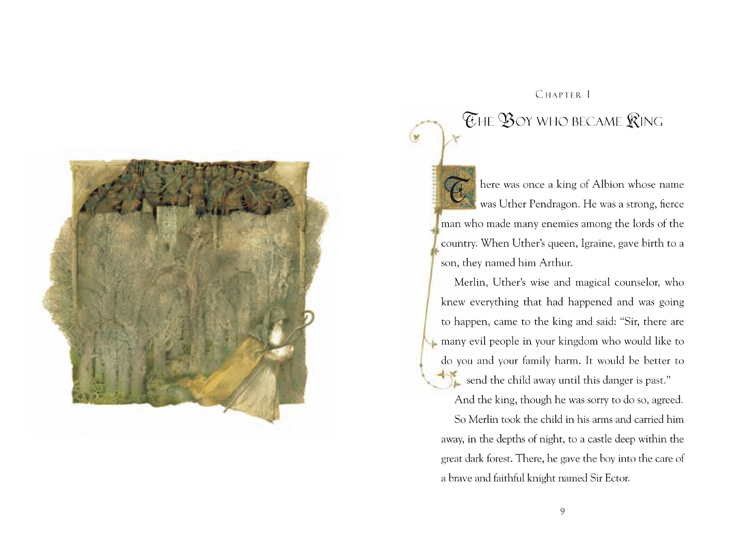 Chapter 1
The Boy who became King
There was once a king of Albion whose name
was Uther Pendragon. He was a strong, fierce
man who made many enemies among the lords of the
country. When Uther's queen, Igraine, gave birth to a
son, they named him Arthur.
Merlin, Uther's wise and magical counselor, who
knew everything that had happened and was going
to happen, came to the king and said: “Sir, there are
many evil people in your kingdom who would like to
do you and your family harm. It would be better to
send the child away until this danger is past.”
And the king, though he was sorry to do so, agreed.
So Merlin took the child in his arms and carried him
away, in the depths of night, to a castle deep within the
great dark forest. There, he gave the boy into the care of
a brave and faithful knight named Sir Ector.
9